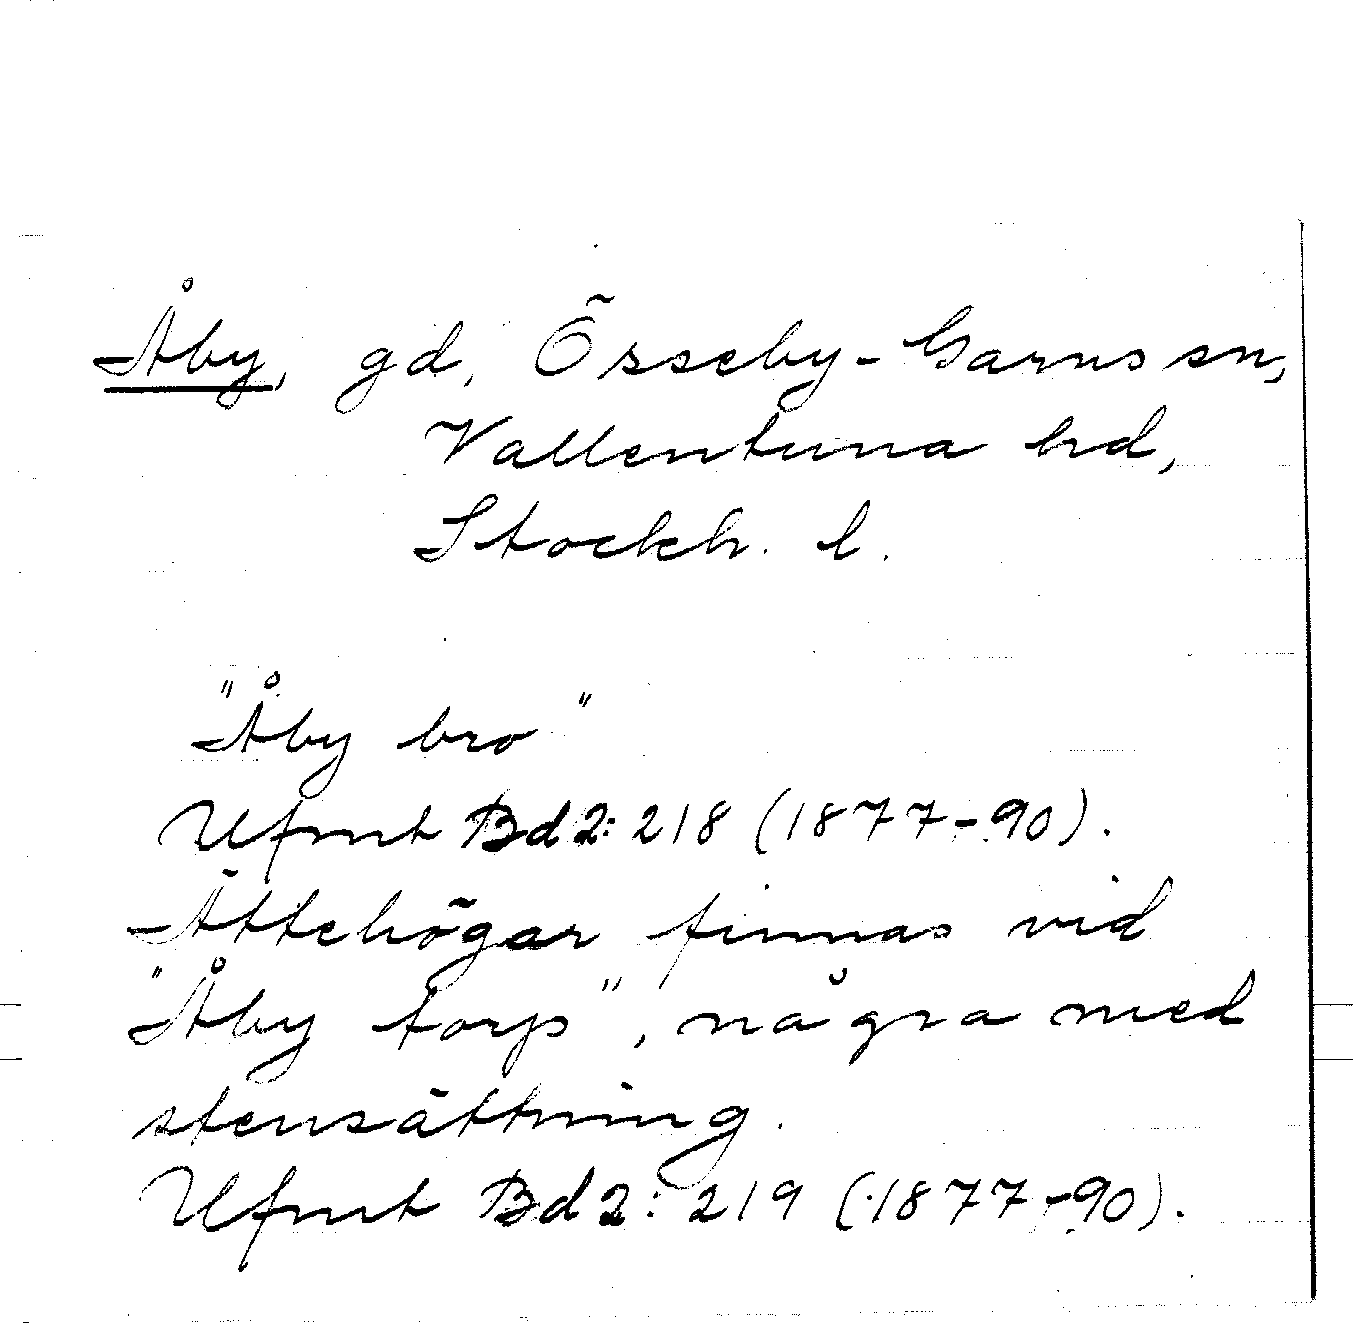 Åby, gd, Össeby-Garns sn,
Vallentuna hd,
Stockh. l.
"Åby bro"
Ufmt Bd 2: 218 (1877-90).
Ättehögar finnas vid
"Åby torp", några med
stensättning.
Ufmt Bd 2: 219 (1877-90).